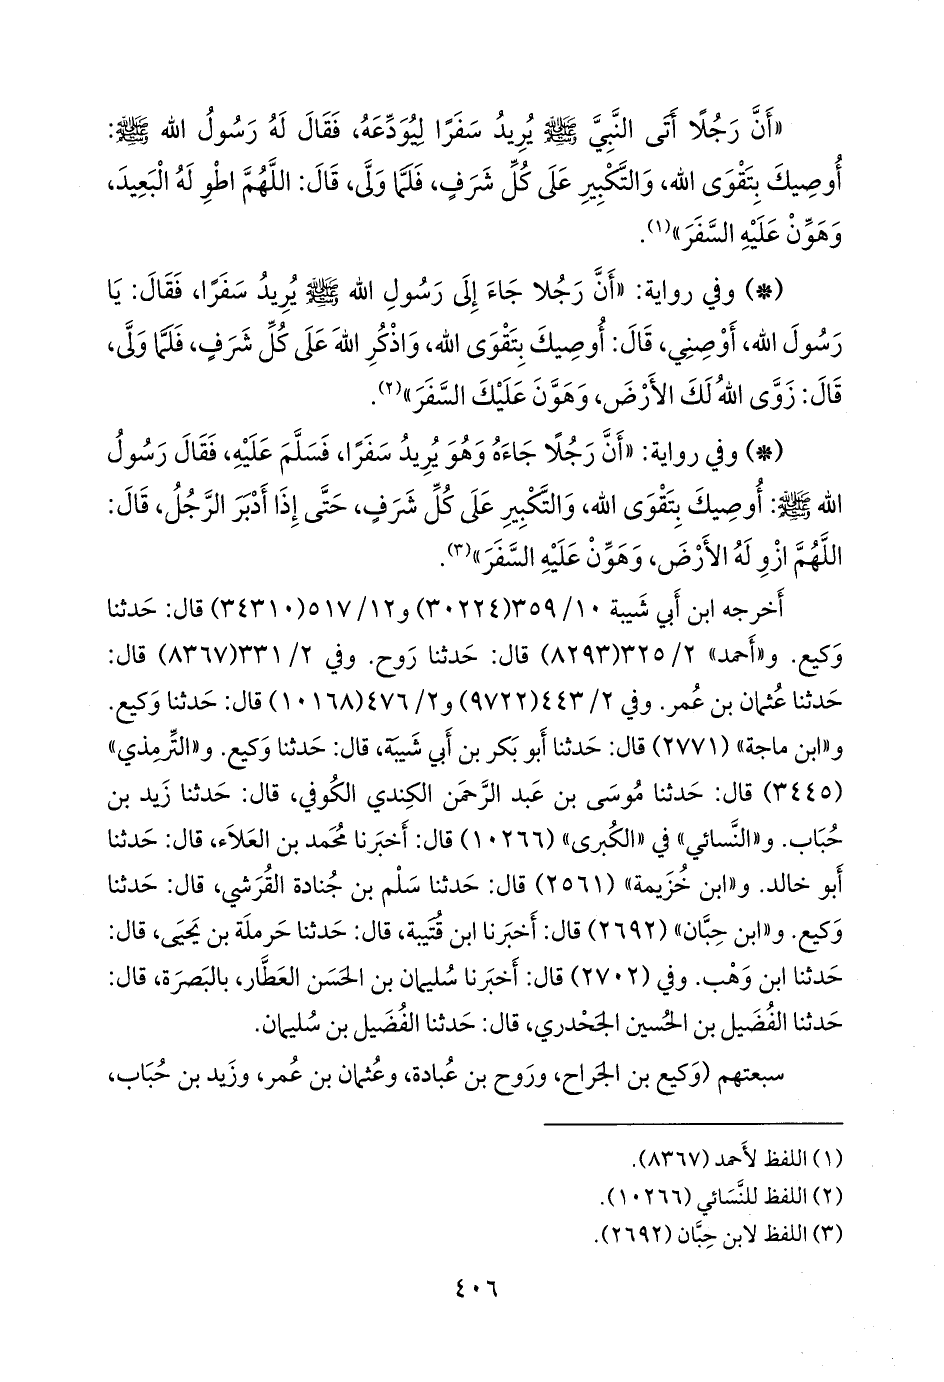 «أَنَّ رَجُلًا أَتَى النَّبِيَّ ﷺ يُرِيدُ سَفَرًا لِيُوَدِّعَهُ، فَقَالَ لَهُ رَسُولُ الله ﷺ:
أُوصِيكَ بِتَقْوَى الله، وَالتَّكْبِيرِ عَلَى كُلِّ شَرَفٍ، فَلَمَّا وَلَّى، قَالَ: اللَّهُمَّ اطْوِ لَهُ الْبَعِيدَ،
وَهَوِّنْ عَلَيْهِ السَّفَرَ»(١).
(*) وفي رواية: «أَنَّ رَجُلا جَاءَ إِلَى رَسُولِ الله ﷺ يُرِيدُ سَفَرًا، فَقَالَ: يَا
رَسُولَ الله، أَوْصِنِي، قَالَ: أُوصِيكَ بِتَقْوَى الله، وَاذْكُرِ اللهَ عَلَى كُلِّ شَرَفٍ، فَلَمَّا وَلَّى،
قَالَ: زَوَّى اللهُ لَكَ الأَرْضَ، وَهَوَّنَ عَلَيْكَ السَّفَرَ»(٢).
(*) وفي رواية: «أَنَّ رَجُلًا جَاءَهُ وَهُوَ يُرِيدُ سَفَرًا، فَسَلَّمَ عَلَيْهِ، فَقَالَ رَسُولُ
الله ﷺ: أُوصِيكَ بِتَقْوَى الله، وَالتَّكْبِيرِ عَلَى كُلِّ شَرَفٍ، حَتَّى إِذَا أَدْبَرَ الرَّجُلُ، قَالَ:
اللَّهُمَّ ازْوِ لَهُ الأَرْضَ، وَهَوِّنْ عَلَيْهِ السَّفَرَ»(٣).
أَخرجه ابن أَبي شَيبة ١٠/ ٣٥٩(٣٠٢٢٤) و١٢/ ٥١٧(٣٤٣١٠) قال: حَدثنا
وَكيع. و«أحمد» ٢/ ٣٢٥(٨٢٩٣) قال: حَدثنا رَوح. وفي ٢/ ٣٣١(٨٣٦٧) قال:
حَدثنا عُثمان بن عُمر. وفي ٢/ ٤٤٣(٩٧٢٢) و٢/ ٤٧٦(١٠١٦٨) قال: حَدثنا وَكيع.
و«ابن ماجة» (٢٧٧١) قال: حَدثنا أَبو بَكر بن أَبي شَيبَة، قال: حَدثنا وَكيع. و«التِّرمِذي»
(٣٤٤٥) قال: حَدثنا مُوسَى بن عَبد الرَّحمَن الكِندي الكُوفي، قال: حَدثنا زَيد بن
حُبَاب. و«النَّسائي» في «الكُبرى» (١٠٢٦٦) قال: أَخبَرنا مُحمد بن العَلاَء، قال: حَدثنا
أَبو خالد. و«ابن خُزيمة» (٢٥٦١) قال: حَدثنا سَلْم بن جُنادة القُرَشي، قال: حَدثنا
وَكيع. و«ابن حِبَّان» (٢٦٩٢) قال: أَخبَرنا ابن قُتَيبة، قال: حَدثنا حَرملَة بن يَحيَى، قال:
حَدثنا ابن وَهْب. وفي (٢٧٠٢) قال: أَخبَرنا سُليمان بن الحَسَن العَطَّار، بالبَصرَة، قال:
حَدثنا الفُضَيل بن الحُسين الجَحْدري، قال: حَدثنا الفُضَيل بن سُليمان.
سبعتهم (وَكيع بن الجَراح، ورَوح بن عُبادة، وعُثمان بن عُمر، وزَيد بن حُبَاب،
(١) اللفظ لأَحمد (٨٣٦٧).
(٢) اللفظ للنَّسَائي (١٠٢٦٦).
(٣) اللفظ لابن حِبَّان (٢٦٩٢).
٤٠٦